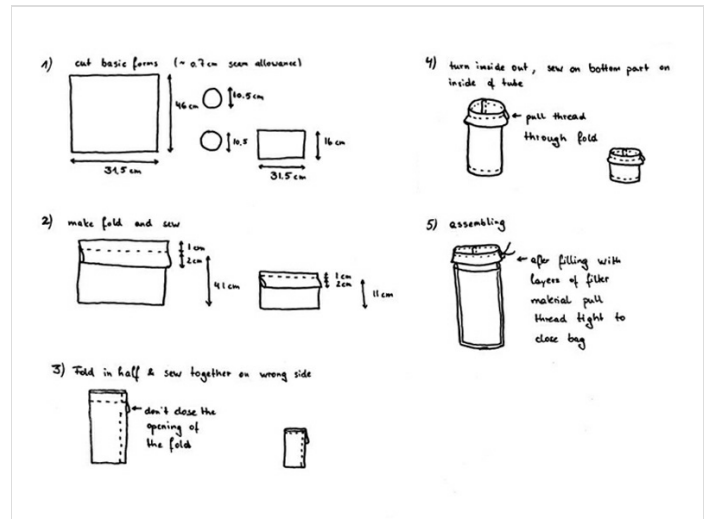 1) cut basic forms (~ 0.7cm seam allowance)
46 cm
10.5 cm
10.5
16 cm
31.5 cm
31.5 cm
2) make fold and sew
1 cm
2cm
41 cm
1 cm
2cm
11 cm
3) Fold in half & sew together on wrong side
don't close the
opening of
the fold
4) turn inside out, sew on bottom part on
inside of tube
pull thread
through fold
5) assembling
after filling with
layers of filter
material pull
thread tight to
close bag